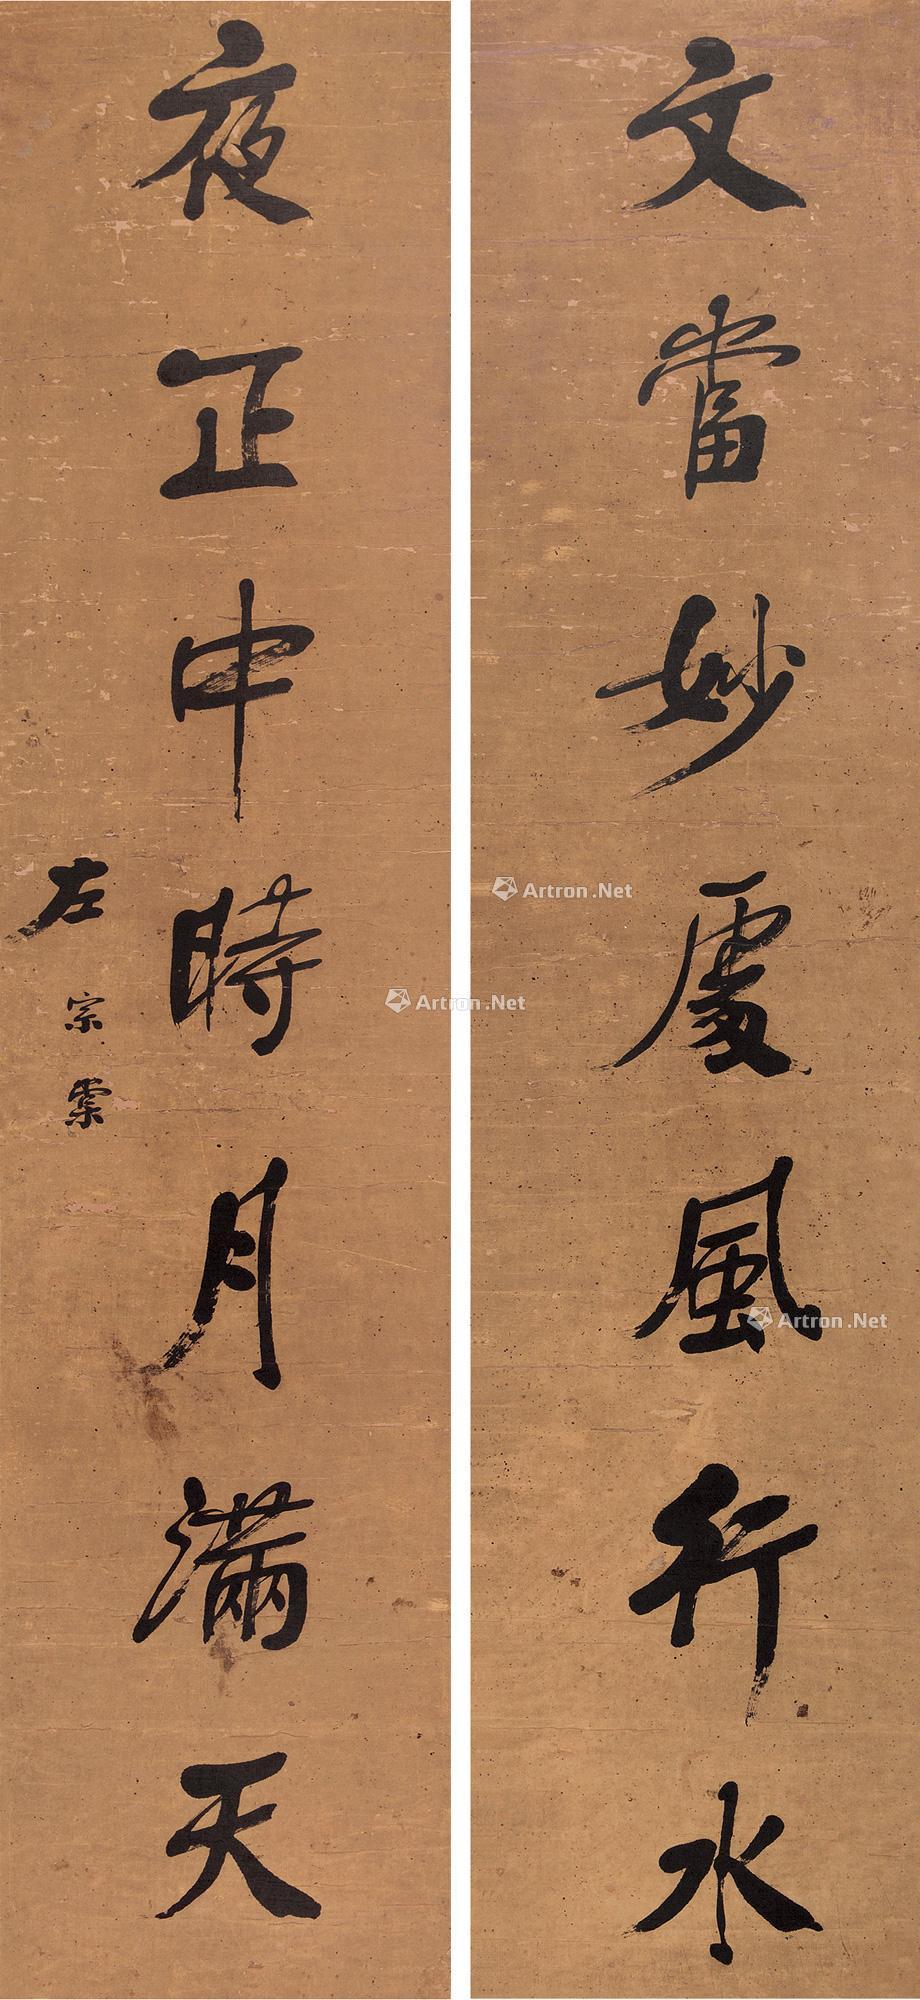 文當妙處風行水
夜正中時月滿天
左宗棠
Artron.Net
Artron.Net
Artron.Net